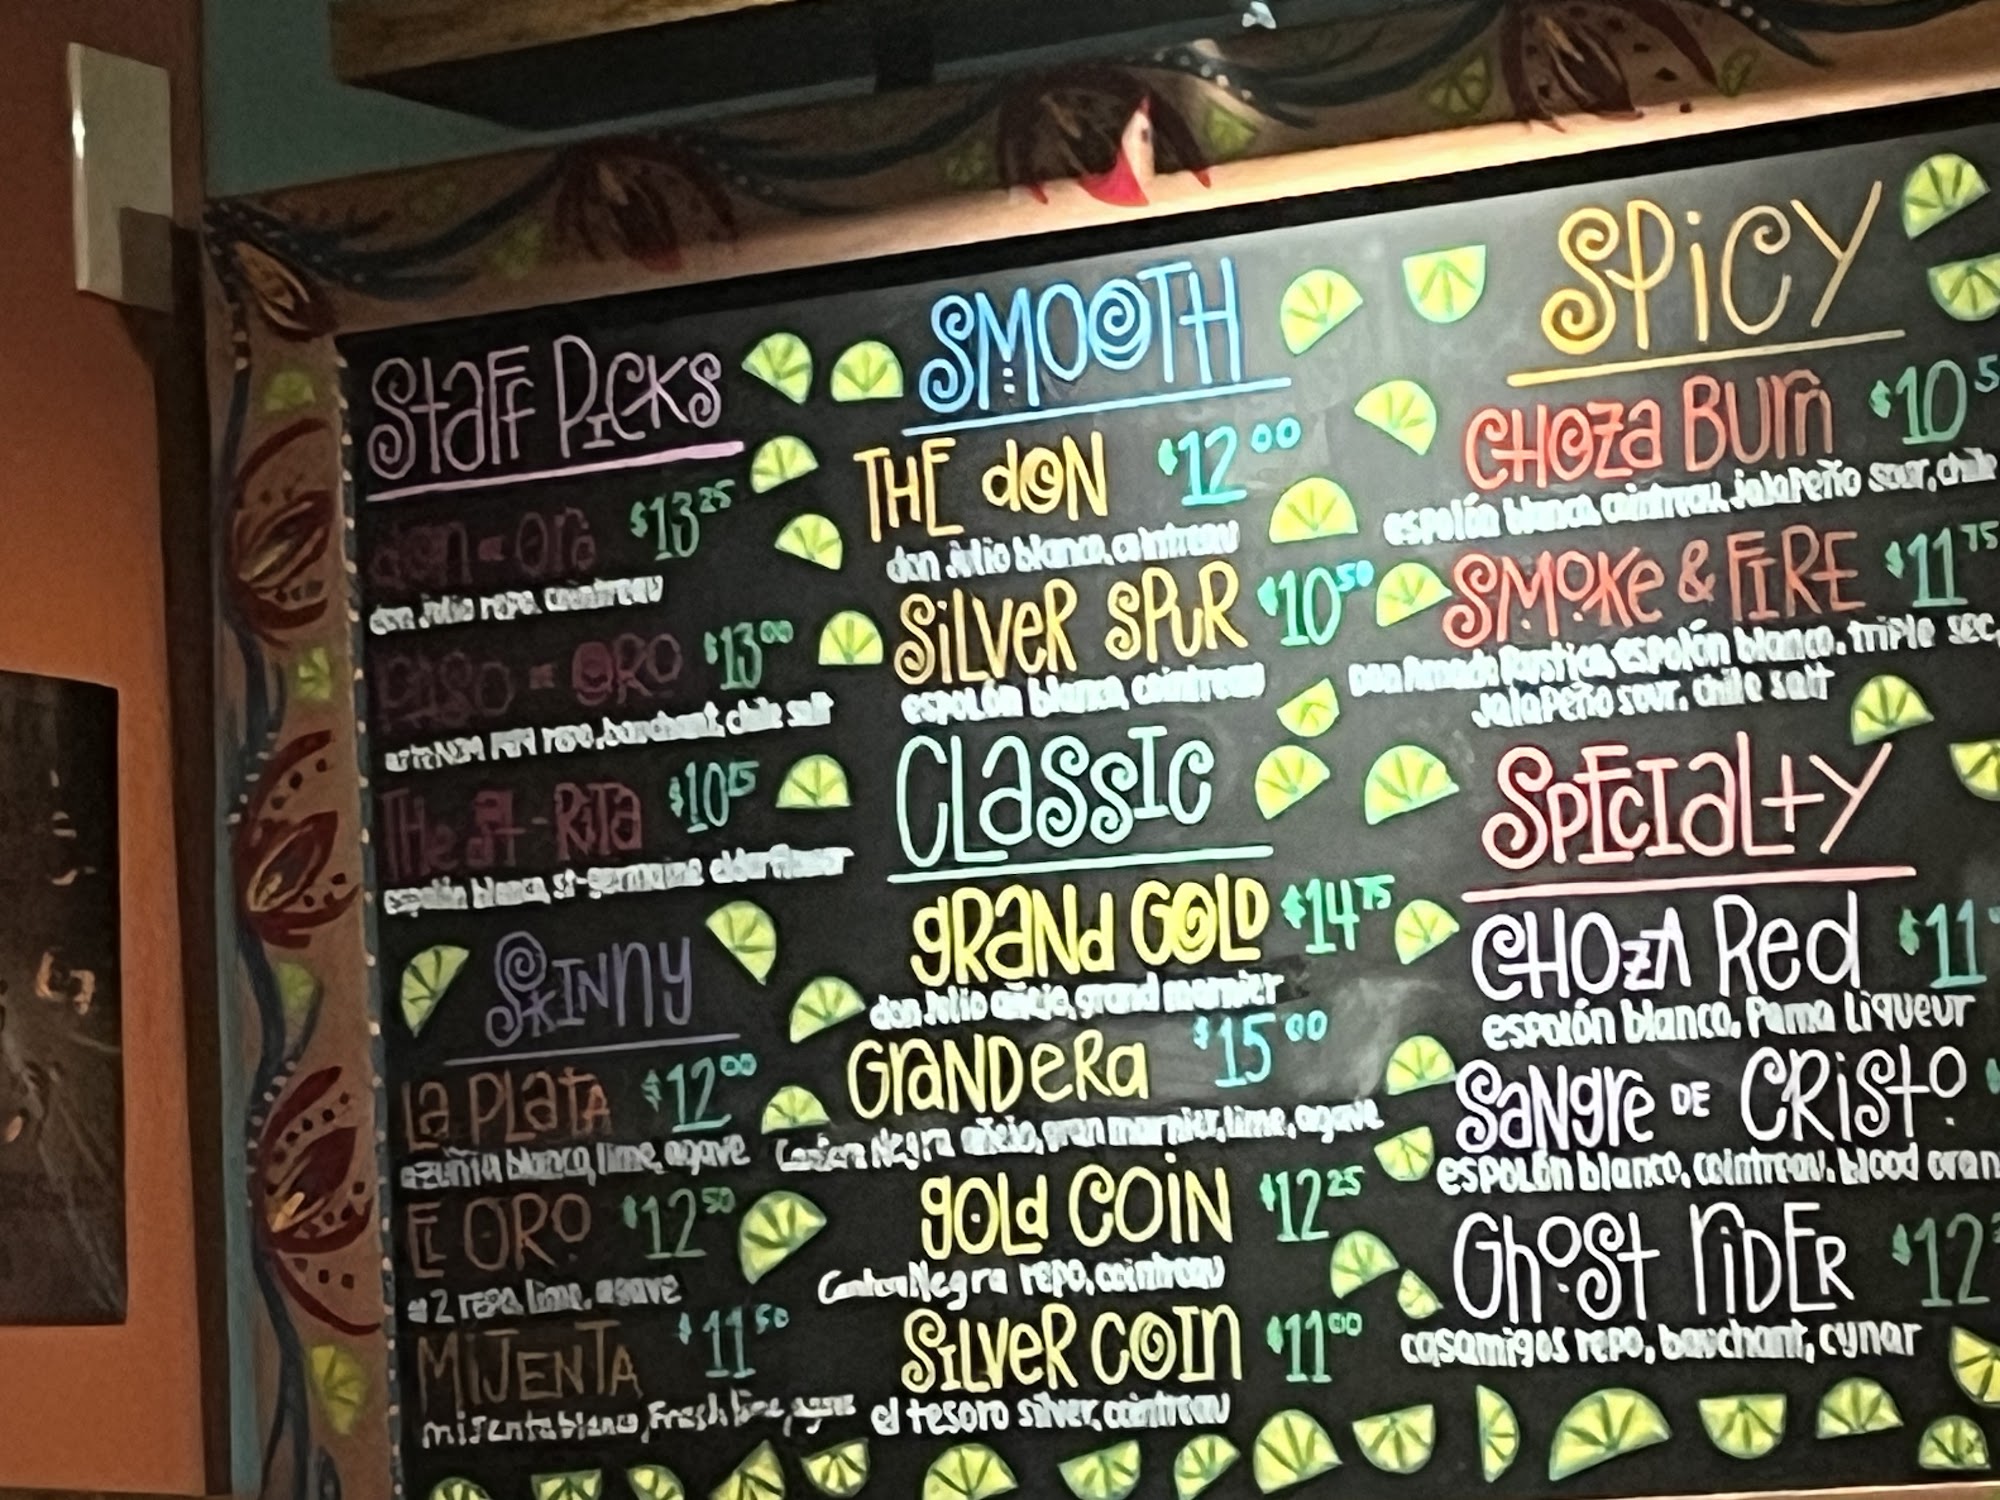 Staff Picks
don-oro $13.25
don Julio repo, cointreau
PASO - ORO $13.00
repo, bauchant, chile salt
The St-Rita $10.75
espolón blanco, st-germaine elderflower
Skinny
La Plata $12.00
azuñia blanco, lime, agave
El Oro $12.50
a2 repo, lime, agave
Mijenta $11.50
mijenta blanco, fresh lime, agave
SMOOTH
THE dON $12.00
don Julio blanco, cointreau
SilVeR SPUR $10.50
espolón blanco, cointreau
CLassic
gRaNd GOLD $14.75
don Julio añejo, grand marnier
GRaNDeRa $15.00
Cantera Negra añejo, gran marnier, lime, agave
gold COiN $12.25
Cantera Negra repo, cointreau
SiLVeR COIN $11.00
el tesoro silver, cointreau
SPiCY
CHOZa BUrn $10.5
espolón blanco, cointreau, jalapeño sour, chile
SMOKe & FIRE $11.75
Don Amado Rustica, espolón blanco, triple sec,
jalapeño sour, chile salt
SPECIaLtY
CHOZA Red $11
espolón blanco, Pama liqueur
SaNgre DE CRiStO
espolón blanco, cointreau, blood oran
GhOSt riDER $12
casamigos repo, bauchant, cynar